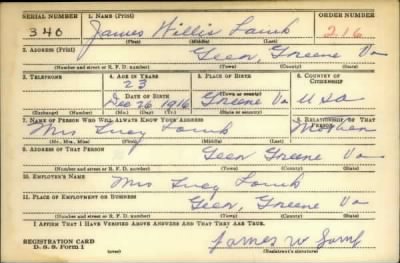 SERIAL NUMBER 1. NAME (Print) ORDER NUMBER
340 James Willis Lamb 216
(First) (Middle) (Last)
2. ADDRESS (Print)
Geer, Greene Va
(Number and street or R. F. D. number) (Town) (County) (State)
3. TELEPHONE 4. AGE IN YEARS 5. PLACE OF BIRTH 6. COUNTRY OF CITIZENSHIP
23
DATE OF BIRTH (Town or county)
Dec 26 1916 Greene Va USA
(Exchange) (Number) (Mo.) (Day) (Yr.) (State or country)
7. NAME OF PERSON WHO WILL ALWAYS KNOW YOUR ADDRESS 8. RELATIONSHIP OF THAT PERSON
Mrs Lucy Lamb Mother
(Mr., Mrs., Miss) (First) (Middle) (Last)
9. ADDRESS OF THAT PERSON
Geer Greene Va
(Number and street or R. F. D. number) (Town) (County) (State)
10. EMPLOYER'S NAME
Mrs Lucy Lamb
11. PLACE OF EMPLOYMENT OR BUSINESS
Geer, Greene Va
(Number and street or R. F. D. number) (Town) (County) (State)
I AFFIRM THAT I HAVE VERIFIED ABOVE ANSWERS AND THAT THEY ARE TRUE.
REGISTRATION CARD James W Lamb
D. S. S. Form 1 (over) (Registrant's signature)